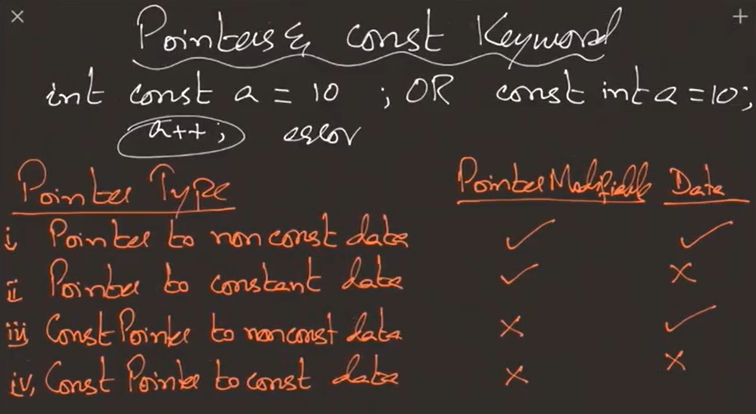 Pointers & const Keyword
int const a = 10 ; OR const int a = 10;
a++; error
Pointer Type Pointer Modifiable Data
i, Pointer to nonconst data ✓ ✓
ii Pointer to constant data ✓ ✗
iii, Const Pointer to nonconst data ✗ ✓
iv, Const Pointer to const data ✗ ✗